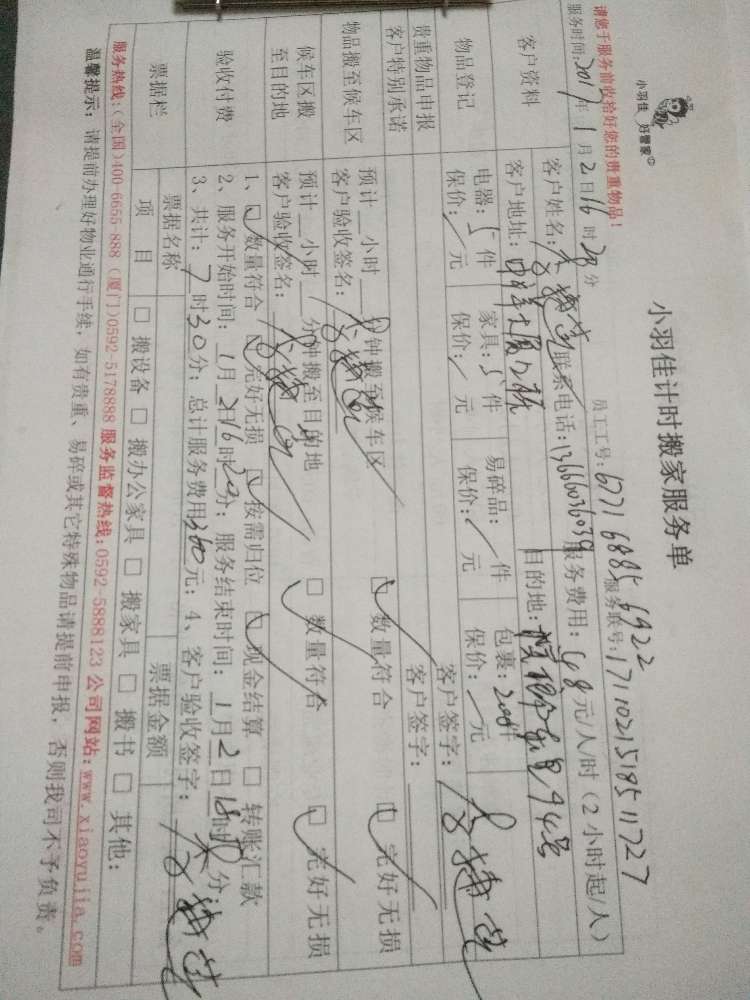 小羽佳 好管家
小羽佳计时搬家服务单
请您于服务前收拾好您的贵重物品!
员工工号: 6771 6885 6922
服务时间: 2017年1月2日16时20分
服务联号: 171102151851 1727
客户资料
客户姓名: 联系电话: 13666036039 服务费用: 48元/人/时 (2小时起/人)
客户地址: 目的地:
物品登记
电器: 5件 家具: 5件 易碎品: 件 包裹: 件
保价: 元 保价: 元 保价: 元 保价: 元
贵重物品申报 客户签字:
客户特别承诺 客户签字:
物品搬至候车区
预计 小时 分钟搬至候车区 数量符合 完好无损
客户验收签名:
候车区搬至目的地
预计 小时 分钟搬至目的地 数量符合 完好无损
客户验收签名:
验收付费
1、数量符合 完好无损 按需归位 现金结算 转账汇款
2、服务开始时间: 1月2日16时20分; 服务结束时间: 1月2日18时 分;
3、共计: 7时30分; 总计服务费用360元; 4、客户验收签字:
票据栏 票据名称 票据金额
项目 搬设备 搬办公家具 搬家具 搬书 其他:
服务热线: (全国)400-6655-888 (厦门)0592-5178888 服务监督热线: 0592-5888123 公司网站: www.xiaoyujia.com
温馨提示: 请提前办理好物业通行手续, 如有贵重、易碎或其它特殊物品请提前申报, 否则我司不予负责。